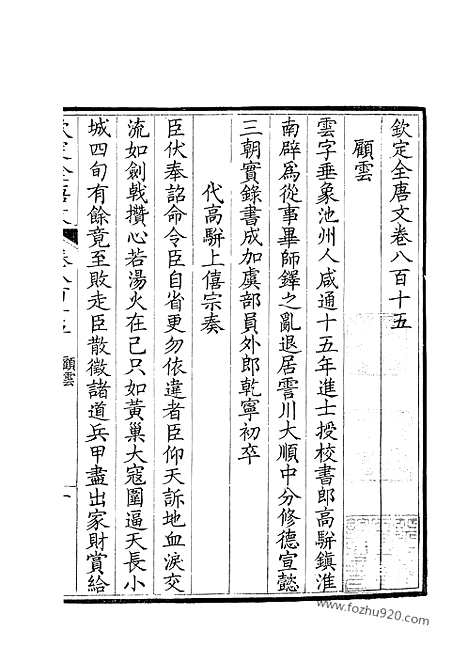 欽定全唐文卷八百十五
顧雲
雲字垂象池州人咸通十五年進士授校書郎高駢鎮淮
南辟爲從事畢師鐸之亂退居霅川大順中分修德宣懿
三朝實錄書成加虞部員外郎乾寧初卒
代高駢上僖宗奏
臣伏奉詔命令臣自省更勿依違者臣仰天訴地血淚交
流如劍戟攢心若湯火在己只如黃巢大寇圍逼天長小
城四旬有餘竟至敗走臣散徵諸道兵甲盡出家財賞給
顧雲
www.fozhu920.com